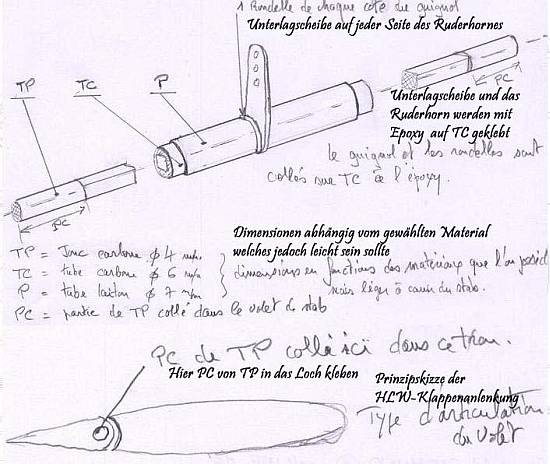 1 Rondelle de chaque coté du guignol
Unterlagscheibe auf jeder Seite des Ruderhornes
TP
TC
P
PC
Unterlagscheibe und das
Ruderhorn werden mit
Epoxy auf TC geklebt
le guignol et les rondelles sont
collés sur TC à l'époxy.
PC
Dimensionen abhängig vom gewählten Material
welches jedoch leicht sein sollte
TP = Jonc carbone ϕ 4 m/m
TC = tube carbone ϕ 6 m/m
P = tube laiton ϕ 7 m/m
dimensions en fonctions des matériaux que l'on possède
mais léger à cause du stab.
PC = partie de TP collé dans le volet de stab
PC de TP collé ici dans ce trou.
Hier PC von TP in das Loch kleben
Prinzipskizze der
HLW-Klappenanlenkung
Type d'articulation
du volet